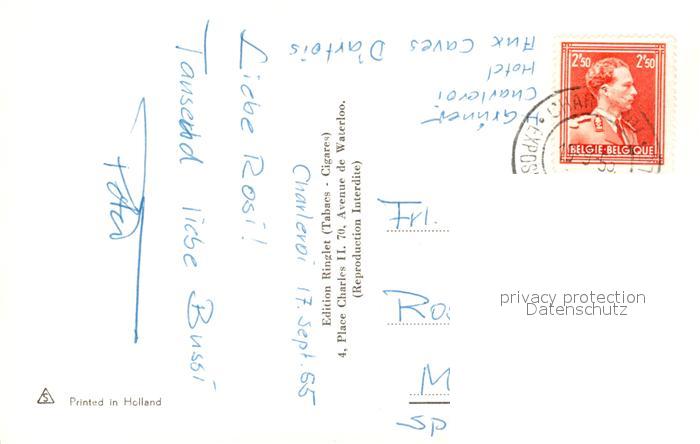 Charleroi 17. Sept. 65
Liebe Rosi!
Tausend liebe Bussi
Hotel
Aux Caves D'artois
Charleroi
Edition Ringlet (Tabacs - Cigares)
4, Place Charles II. 70, Avenue de Waterloo.
(Reproduction Interdite)
Frl.
Ros
M
2'50 2'50
BELGIE-BELGIQUE
privacy protection
Datenschutz
Printed in Holland